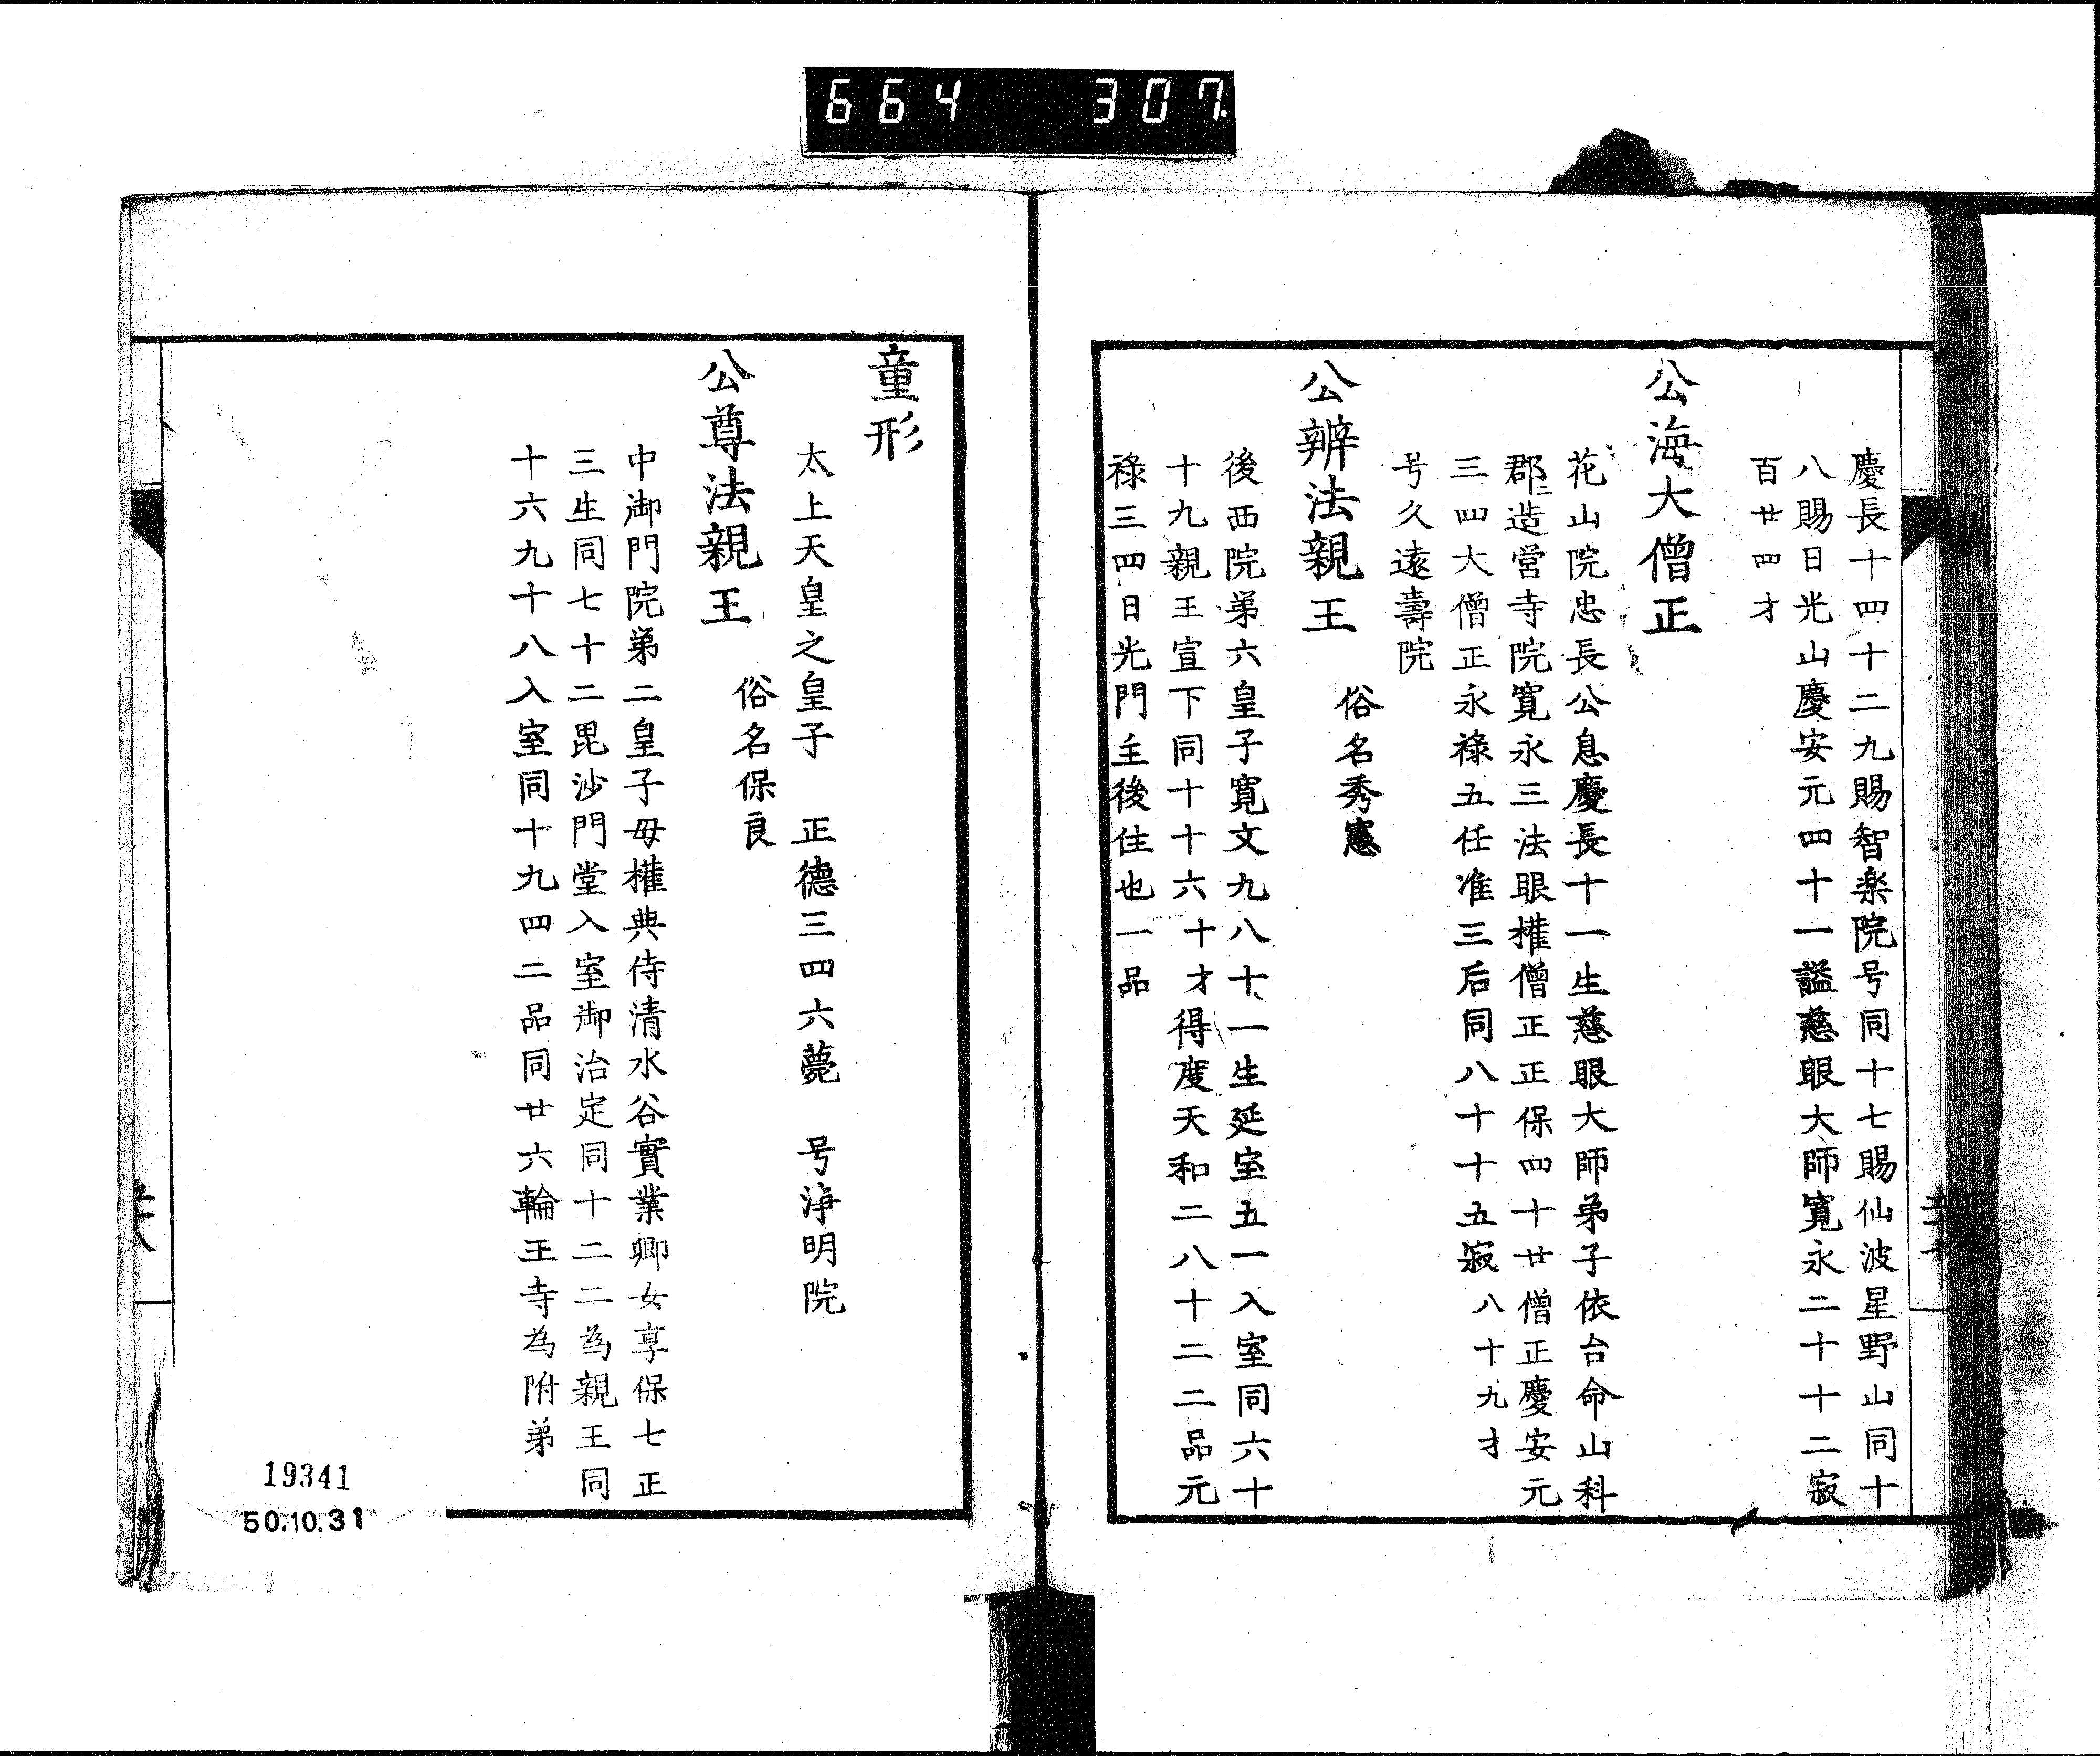 664 307
慶長十四十二九賜智楽院号同十七賜仙波星野山同十
八賜日光山慶安元四十一謚慈眼大師寛永二十十二寂
百廿四才
公海大僧正
花山院忠長公息慶長十一生慈眼大師弟子依台命山科
郡造営寺院寛永三法眼権僧正正保四十廿僧正慶安元
三四大僧正永禄五任准三后同八十十五寂八十九才
号久遠壽院
公辨法親王 俗名秀憲
後西院第六皇子寛文九八十一生延宝五一入室同六十
十九親王宣下同十十六十才得度天和二八十二二品元
禄三四日光門主後住也一品
童形
太上天皇之皇子 正德三四六薨 号浄明院
公尊法親王 俗名保良
中御門院第二皇子母權典侍清水谷實業卿女享保七正
三生同七十二毘沙門堂入室御治定同十二二為親王同
十六九十八入室同十九四二品同廿六輪王寺為附弟
19341
50.10.31